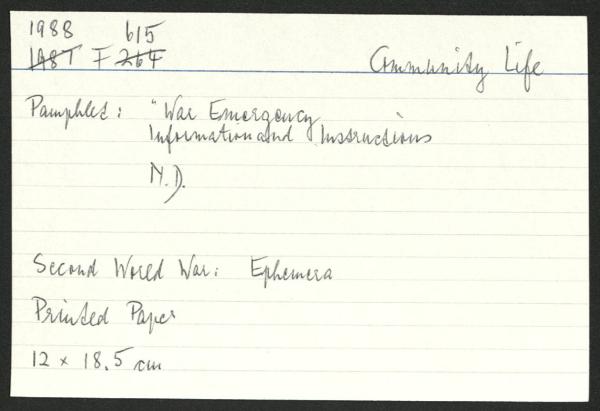 1988 615
1987 F 264
Community Life
Pamphlet: "War Emergency
Information and Instructions
N.D.
Second World War: Ephemera
Printed Paper
12 x 18.5 cm